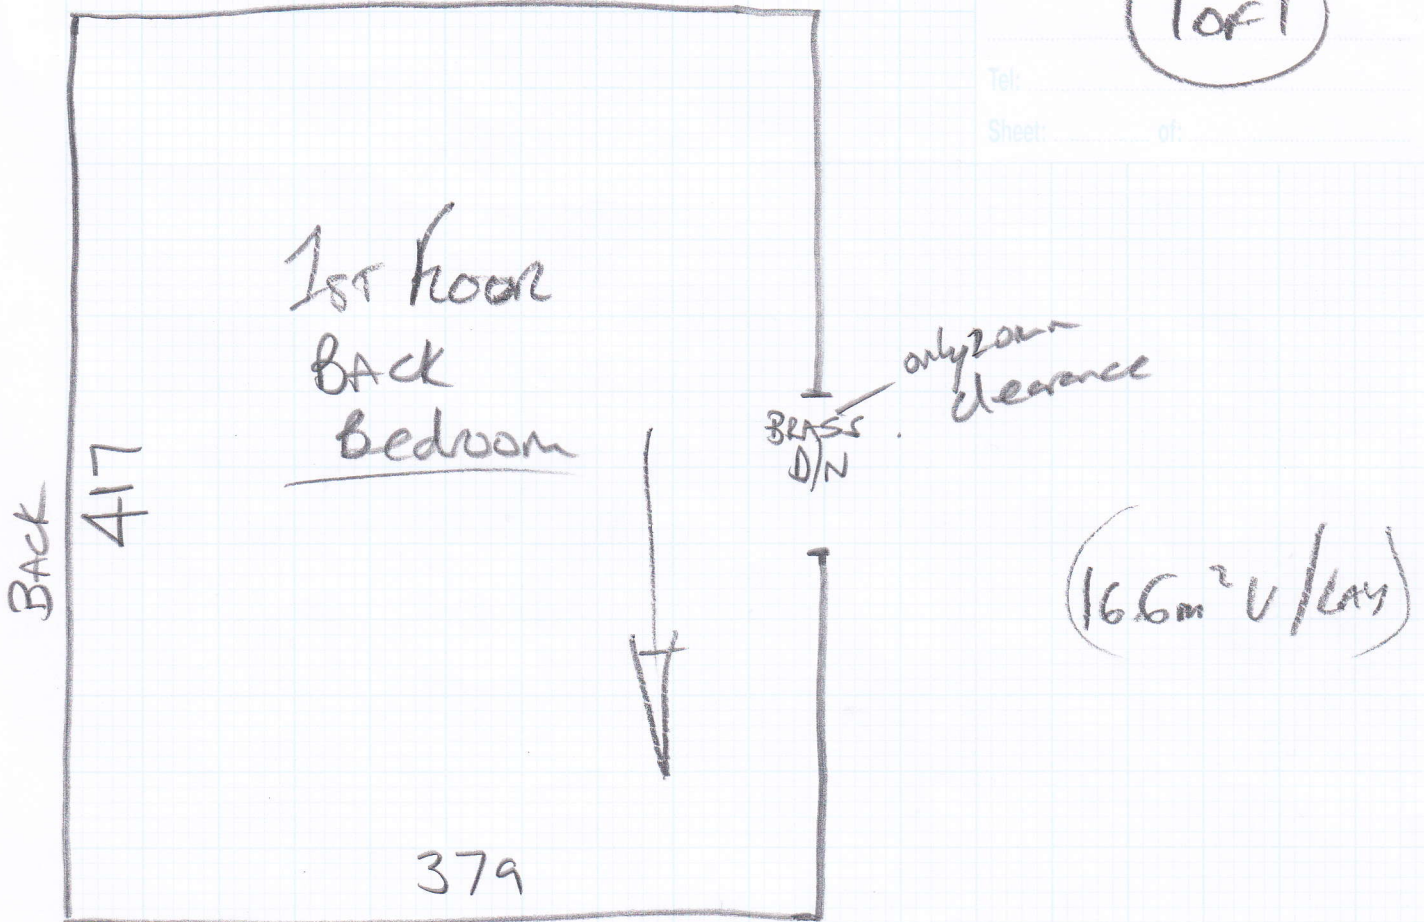 1 of 1
Tel:
Sheet: of:
1ST Floor
BACK
Bedroom
only 20mm
clearance
BRASS
D/N
BACK
417
(16.6m² U/LAY)
379